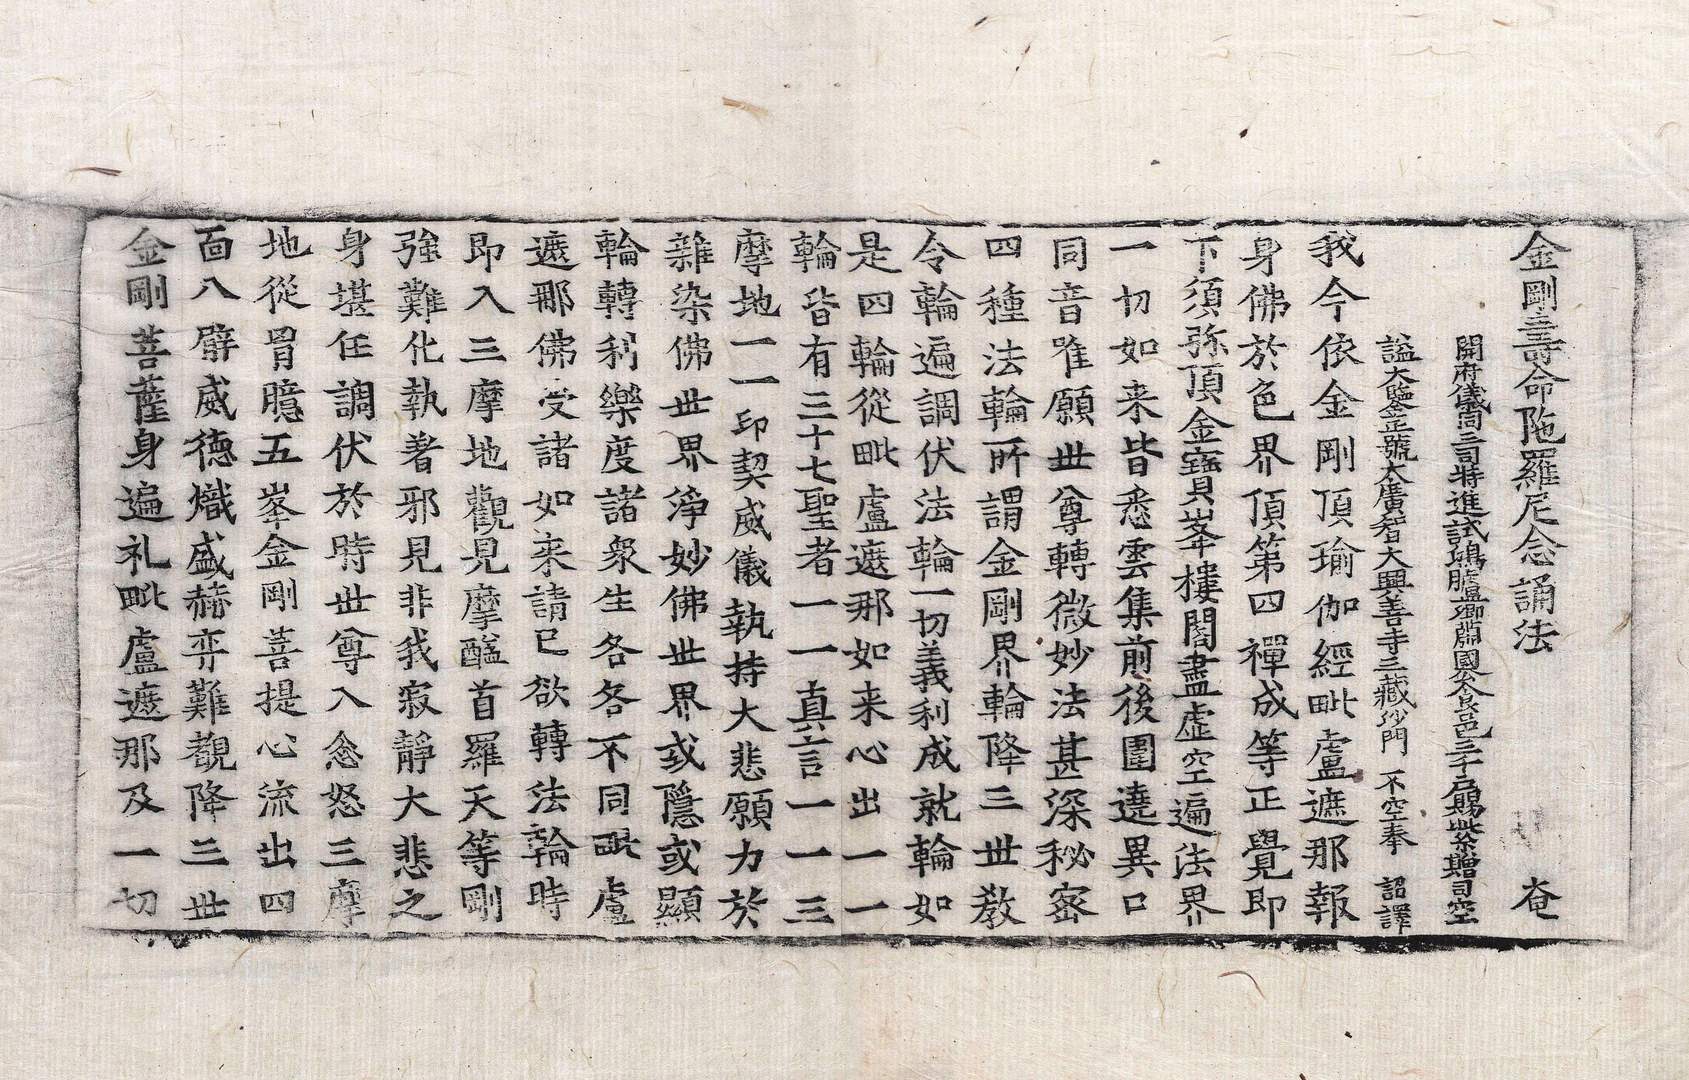 金剛壽命陁羅尼念誦法 奄
開府儀同三司特進試鴻臚卿肅國公食邑三千戶賜紫贈司空
謚大鑒正號大廣智大興善寺三藏沙門 不空奉 詔譯
我今依金剛頂瑜伽經毗盧遮那報
身佛於色界頂第四禪成等正覺即
下須弥頂金寶峯樓閣盡虛空遍法界
一切如来皆悉雲集前後圍遶異口
同音唯願世尊轉微妙法甚深秘密
四種法輪所謂金剛界輪降三世教
令輪遍調伏法輪一切義利成就輪如
是四輪從毗盧遮那如来心出一一
輪皆有三十七聖者一一真言一一三
摩地一一印契威儀執持大悲願力於
雜染佛世界淨妙佛世界或隱或顯
輪轉利樂度諸衆生各各不同毗盧
遮那佛受諸如来請已欲轉法輪時
即入三摩地觀見摩醯首羅天等剛
強難化執著邪見非我寂靜大悲之
身堪任調伏於時世尊入忿怒三摩
地從胷臆五峯金剛菩提心流出四
面八臂威德熾盛赫弈難覩降三世
金剛菩薩身遍礼毗盧遮那及一切